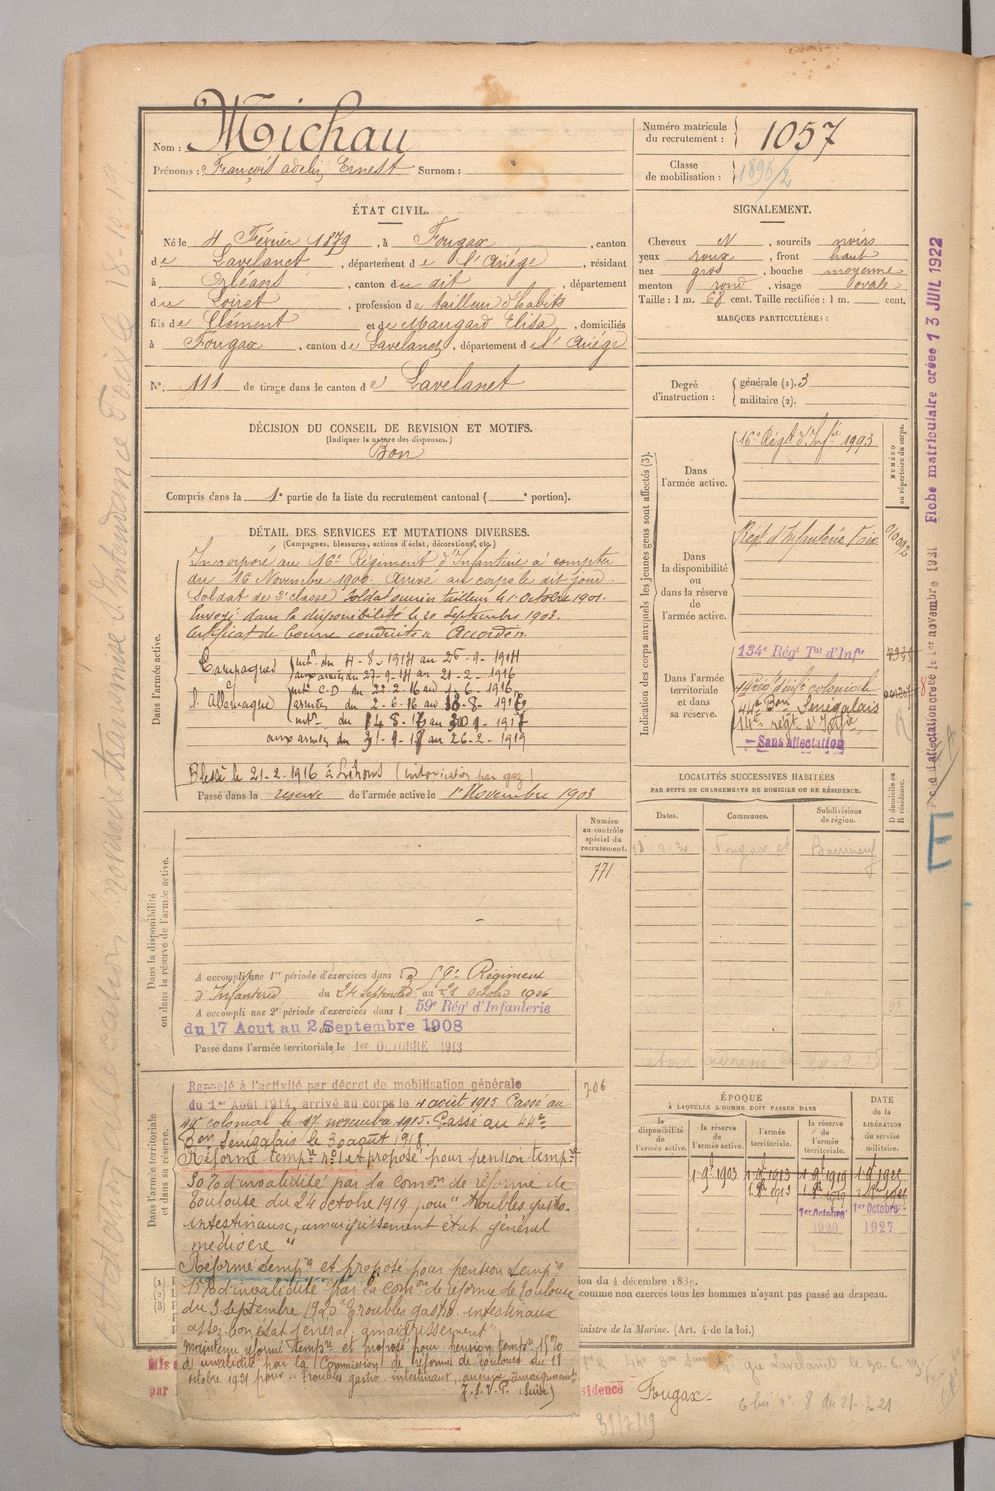 Nom : Michau
Prénoms : François adelin, Ernest Surnom :
Numéro matricule du recrutement : 1057
Classe de mobilisation : 1895/2
ÉTAT CIVIL.
Né le 4 Février 1879, à Fougax, canton
de Lavelanet, département de l'Ariège, résidant
à Orléans, canton du dit, département
du Loiret, profession de tailleur d'habits
fils de Clément et de Maugard Elisa, domiciliés
à Fougax, canton de Lavelanet, département de l'Ariège
N°. 111 de tirage dans le canton de Lavelanet
SIGNALEMENT.
Cheveux N, sourcils noirs
yeux roux, front haut
nez gros, bouche moyenne
menton rond, visage ovale
Taille : 1 m. 68 cent. Taille rectifiée : 1 m. cent.
MARQUES PARTICULIÈRES :
Degré d'instruction : générale (1). 3
militaire (2).
DÉCISION DU CONSEIL DE REVISION ET MOTIFS.
(Indiquer la nature des dispenses.)
Bon
Compris dans la 1e partie de la liste du recrutement cantonal ( e portion).
DÉTAIL DES SERVICES ET MUTATIONS DIVERSES.
(Campagnes, blessures, actions d'éclat, décorations, etc.)
Dans l'armée active.
Incorporé au 16e Régiment d'Infanterie à compter
du 16 Novembre 1900. Arrivé au corps le dit jour.
Soldat de 2e classe. Soldat ouvrier tailleur le 1er Octobre 1901.
Envoyé dans la disponibilité le 20 Septembre 1903.
Certificat de bonne conduite « Accordé ».
Campagnes int. du 4-8-1914 au 26-9-1914
aux armées du 27-9-14 au 21-2-1916
int. C.D du 22-2-16 au 1-6-1916
c. Allemagne armées du 2-6-16 au 13-8-1917
int. du 14-8-17 au 30 9-1917
aux armées du 31-9-17 au 26-2-1919
Blessé le 21-2-1916 à Lihons (intoxication par gaz)
Passé dans la réserve de l'armée active le 1er Novembre 1903
Indication des corps auxquels les jeunes gens sont affectés (3).
NUMÉRO au répertoire du corps.
Dans l'armée active.
16e Régt d'Infie 1993
Dans la disponibilité ou dans la réserve de l'armée active.
Régt d'Infanterie Foix
Dans l'armée territoriale et dans sa réserve.
134e Régt Tal d'Infie
44e rég d'infie coloniale
44e Bon Sénégalais
14e régt d'Infie
— Sans affectation
LOCALITÉS SUCCESSIVES HABITÉES
PAR SUITE DE CHANGEMENTS DE DOMICILE OU DE RÉSIDENCE.
Dates. Communes. Subdivisions de région. D domicile ou R résidence.
Fougax et Barrineuf
Dans la disponibilité ou dans la réserve de l'armée active.
Numéro au contrôle spécial du recrutement.
771
A accompli une 1re période d'exercices dans le 59e Régiment
d'Infanterie, du 24 Septembre au 21 octobre 1906
A accompli une 2e période d'exercices dans l 59e Régt d'Infanterie
du 17 Aout au 2 Septembre 1908
Passé dans l'armée territoriale le 1er OCTOBRE 1913
Dans l'armée territoriale et dans sa réserve.
706
Rappelé à l'activité par décret de mobilisation générale
du 1er Août 1914, arrivé au corps le 4 août 1915. Passé au
44e colonial le 17 novembre 1915. Passé au 44e
Bon Sénégalais le 30 août 1918.
Réformé tempre n°1 et proposé pour pension tempre
30 % d'invalidité par la comon de réforme de
Toulouse du 24 octobre 1919 pour "Troubles gastro.
intestinaux, amaigrissement état général
médiocre"
Réformé tempre et proposé pour pension tempre
15% d'invalidité par la comon de réforme de Toulouse
du 3 septembre 1920 "Troubles gastro. intestinaux
assez bon état général, amaigrissement"
Maintenu réformé tempre et proposé pour pension tempre 15%
d'invalidité par la Commission de réforme de toulouse du 18
octobre 1921 pour "Troubles gastro intestinaux, anémie, amaigrissement
T.S.V.P. (Suite)
ÉPOQUE
À LAQUELLE L'HOMME DOIT PASSER DANS
la disponibilité de l'armée active.
la réserve de l'armée active.
l'armée territoriale.
la réserve de l'armée territoriale.
DATE de la LIBÉRATION du service militaire.
1 9bre 1903
1er Octobre 1920
1er Octobre 1927
ion du 4 décembre 1830.
comme non exercés tous les hommes n'ayant pas passé au drapeau.
Ministre de la Marine. (Art. 4 de la loi.)
Mis e
par
sidence
Fougax
31/7/19
6 bis n° 8 du 21-7-21
Fiche matriculaire créée 13 JUIL 1922
E